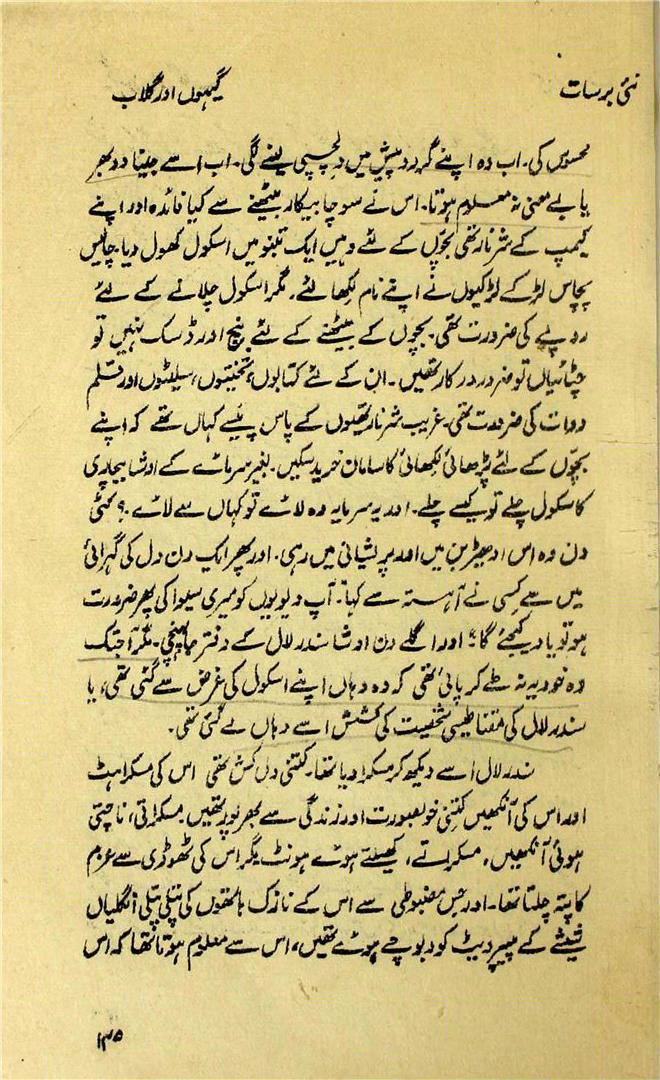 نئی برسات
گیہوں اور گلاب
محسوس کی۔ اب وہ اپنے گرد و پیش میں دلچسپی لینے لگی۔ اب اسے جینا دوبھر
یا بے معنی نہ معلوم ہوتا۔ اس نے سوچا بیکار بیٹھنے سے کیا فائدہ اور اپنے
کیمپ کے شرنارتھی بچوں کے لئے وہیں ایک تنبو میں اسکول کھول دیا۔ چالیس
پچاس لڑکے لڑکیوں نے اپنے نام لکھا لئے۔ مگر اسکول چلانے کے لئے
روپے کی ضرورت تھی۔ بچوں کے بیٹھنے کے لئے بنچ اور ڈسک نہیں تو
چٹائیاں تو ضرور درکار تھیں۔ ان کے لئے کتابوں، تختیوں، سلیٹوں اور قلم
دوات کی ضرورت تھی۔ غریب شرنارتھیوں کے پاس پیسے کہاں تھے کہ اپنے
بچوں کے لئے پڑھائی لکھائی کا سامان خرید سکیں۔ بغیر سرمائے کے اوشا بیچاری
کا سکول چلے تو کیسے چلے۔ اور یہ سرمایہ وہ لائے تو کہاں سے لائے۔؟ کئی
دن وہ اس ادھیڑ بن میں اور پریشانی میں رہی۔ اور پھر ایک دن دل کی گہرائی
میں سے کسی نے آہستہ سے کہا۔ "آپ دیویوں کو میری سیوا کی پھر ضرورت
ہو تو یاد کیجئے گا" اور اگلے دن اوشا سندر لال کے دفتر جا پہنچی۔ مگر آجتک
وہ خود یہ نہ طے کر پائی تھی کہ وہ وہاں اپنے اسکول کی غرض سے گئی تھی، یا
سندر لال کی مقناطیسی شخصیت کی کشش اسے وہاں لے گئی تھی۔
ندر لال اسے دیکھ کر مسکرا دیا تھا۔ کتنی دل کش تھی اس کی مسکراہٹ
اور اس کی آنکھیں کتنی خوبصورت اور زندگی سے بھرپور تھیں۔ مسکراتی، ناچتی
ہوئی آنکھیں، مسکراتے، کھیلتے ہوئے ہونٹ۔ مگر اس کی ٹھوڈی سے عزم
کا پتہ چلتا تھا۔ اور جس مضبوطی سے اس کے نازک ہاتھوں کی پتلی پتلی انگلیاں
شیشے کے پیپر ویٹ کو دبوچے ہوئے تھیں، اس سے معلوم ہوتا تھا کہ اس
۱۳۵